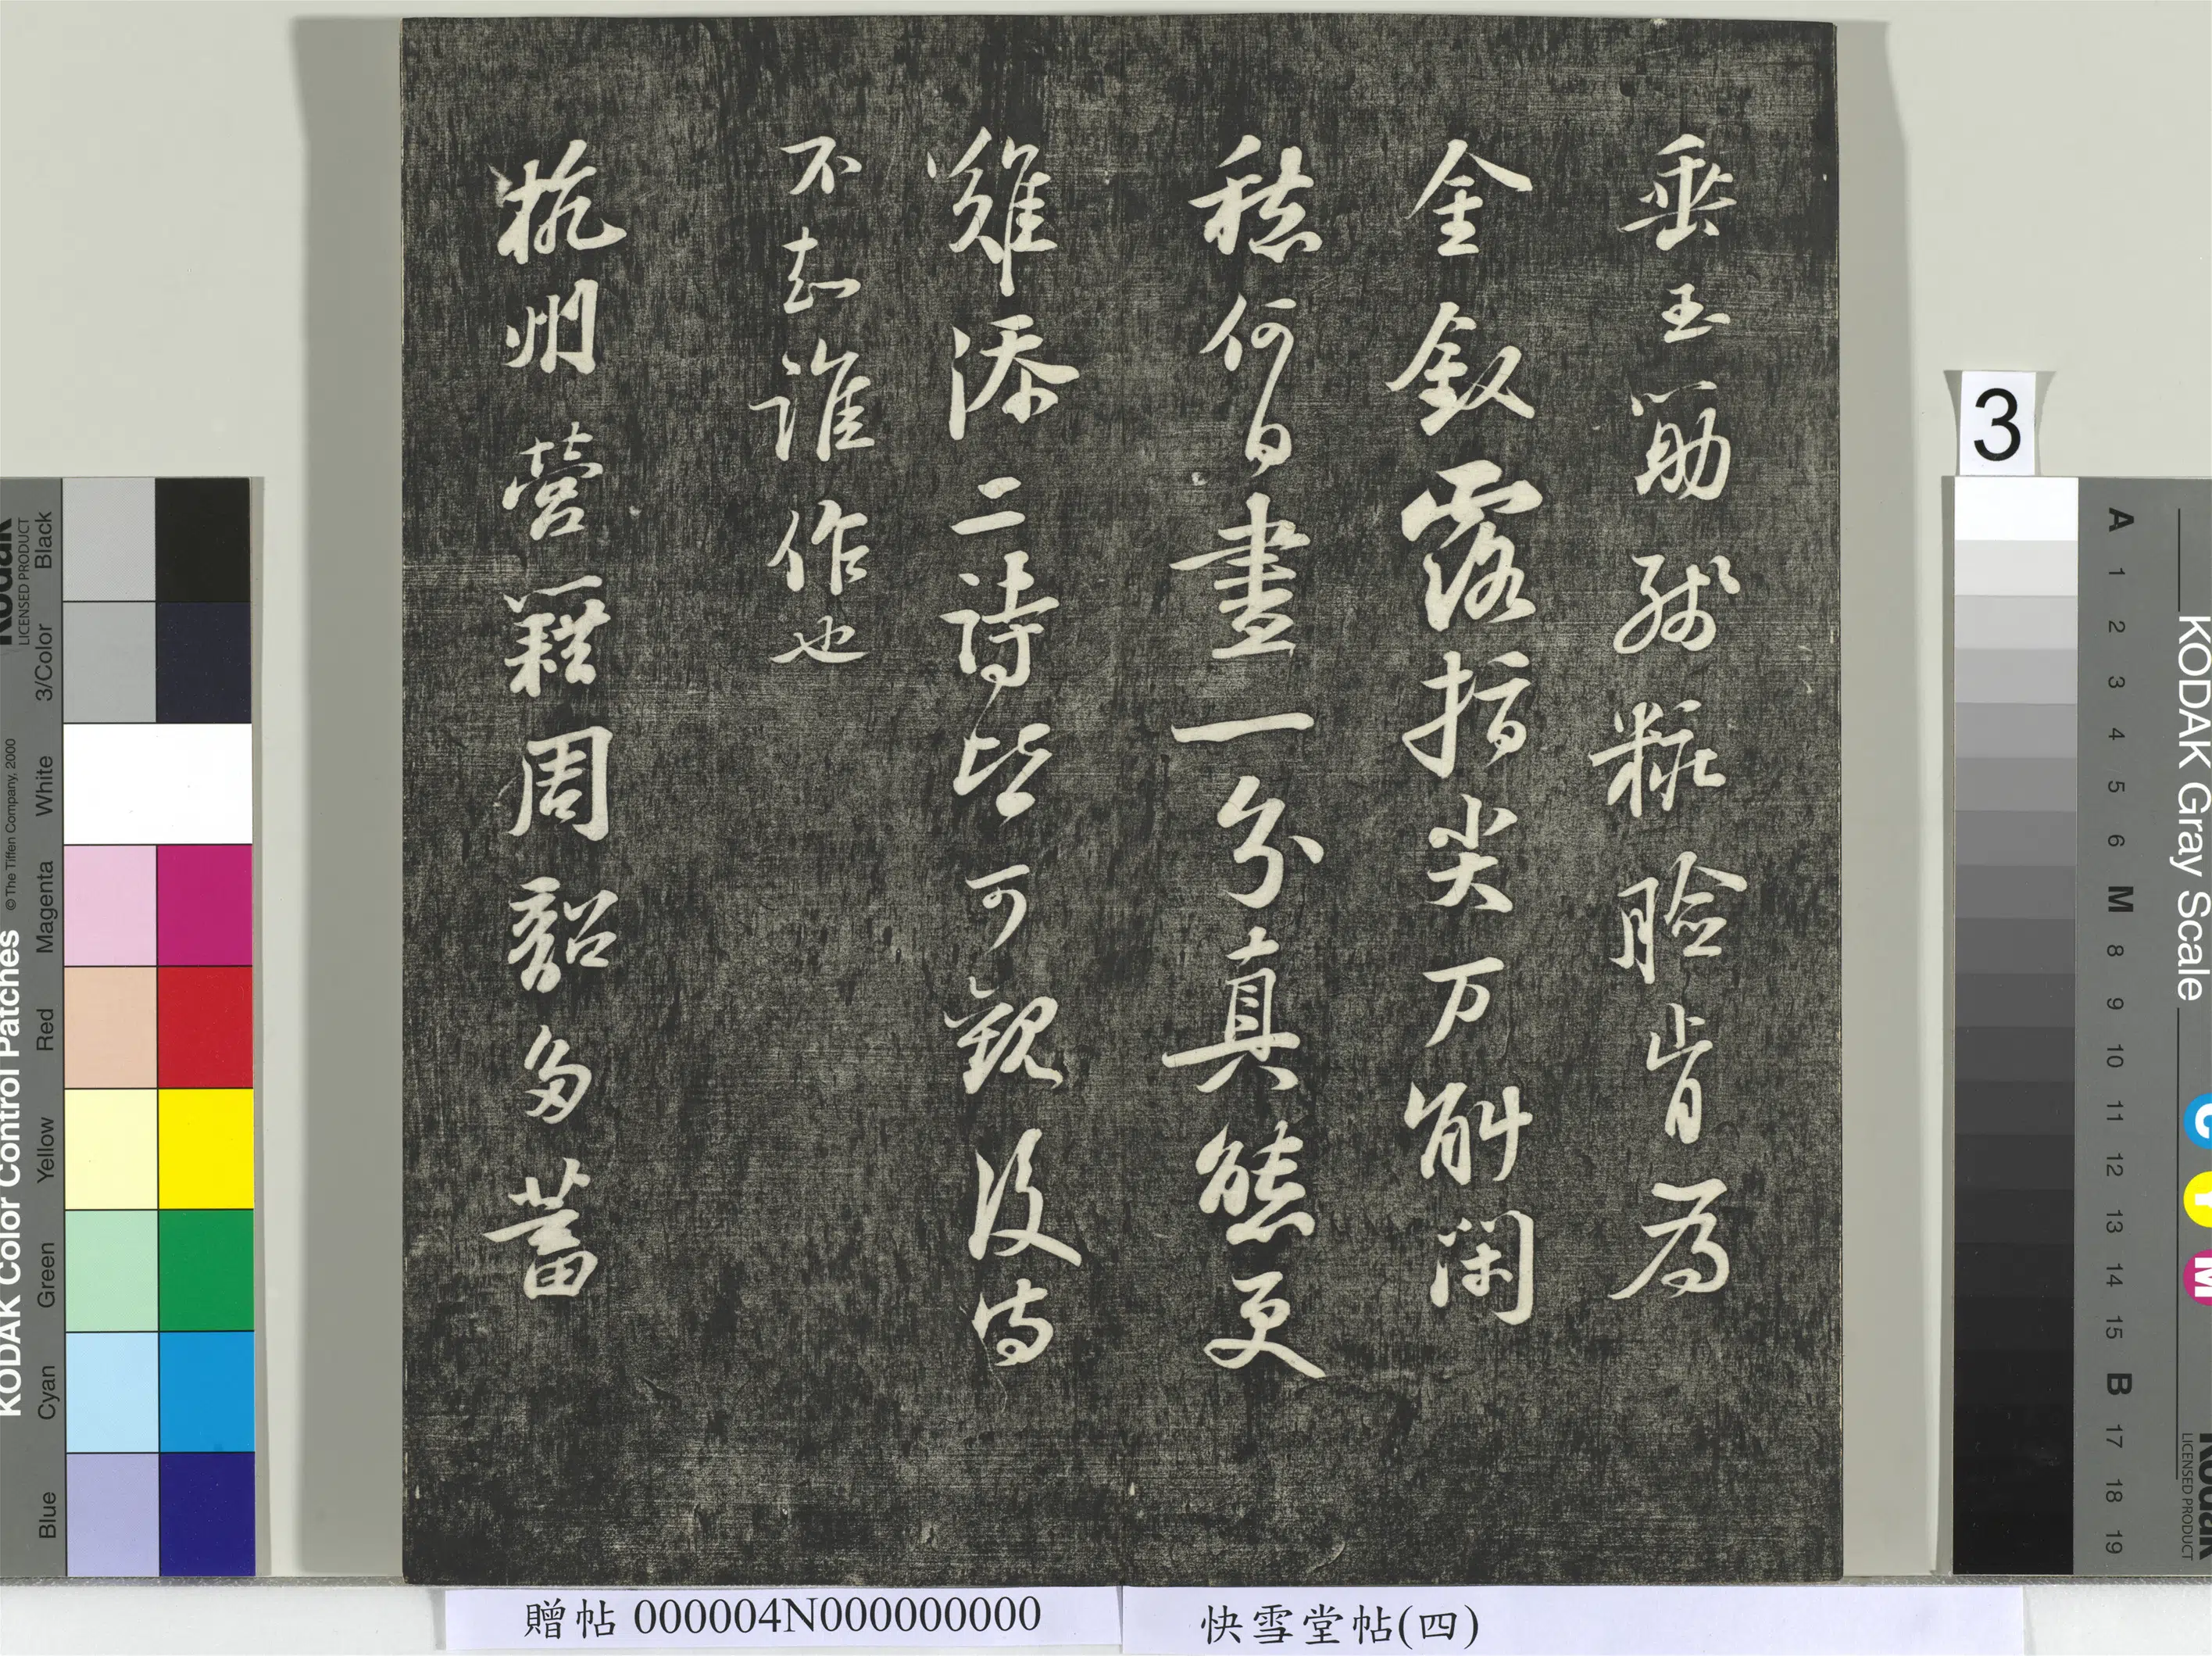 垂玉筯殘粧臉肯為
金釵露指尖万斛閑
愁何日盡一分真態更
難添二詩皆可觀後詩
不知誰作也
杭州營籍周韶多蓄
3
KODAK Color Control Patches
Kodak
LICENSED PRODUCT
© The Tiffen Company, 2000
Blue Cyan Green Yellow Red Magenta White 3/Color Black
KODAK Gray Scale
A 1 2 3 4 5 6 M 8 9 10 11 12 13 14 15 B 17 18 19
C Y M
Kodak
LICENSED PRODUCT
贈帖 000004N000000000
快雪堂帖(四)